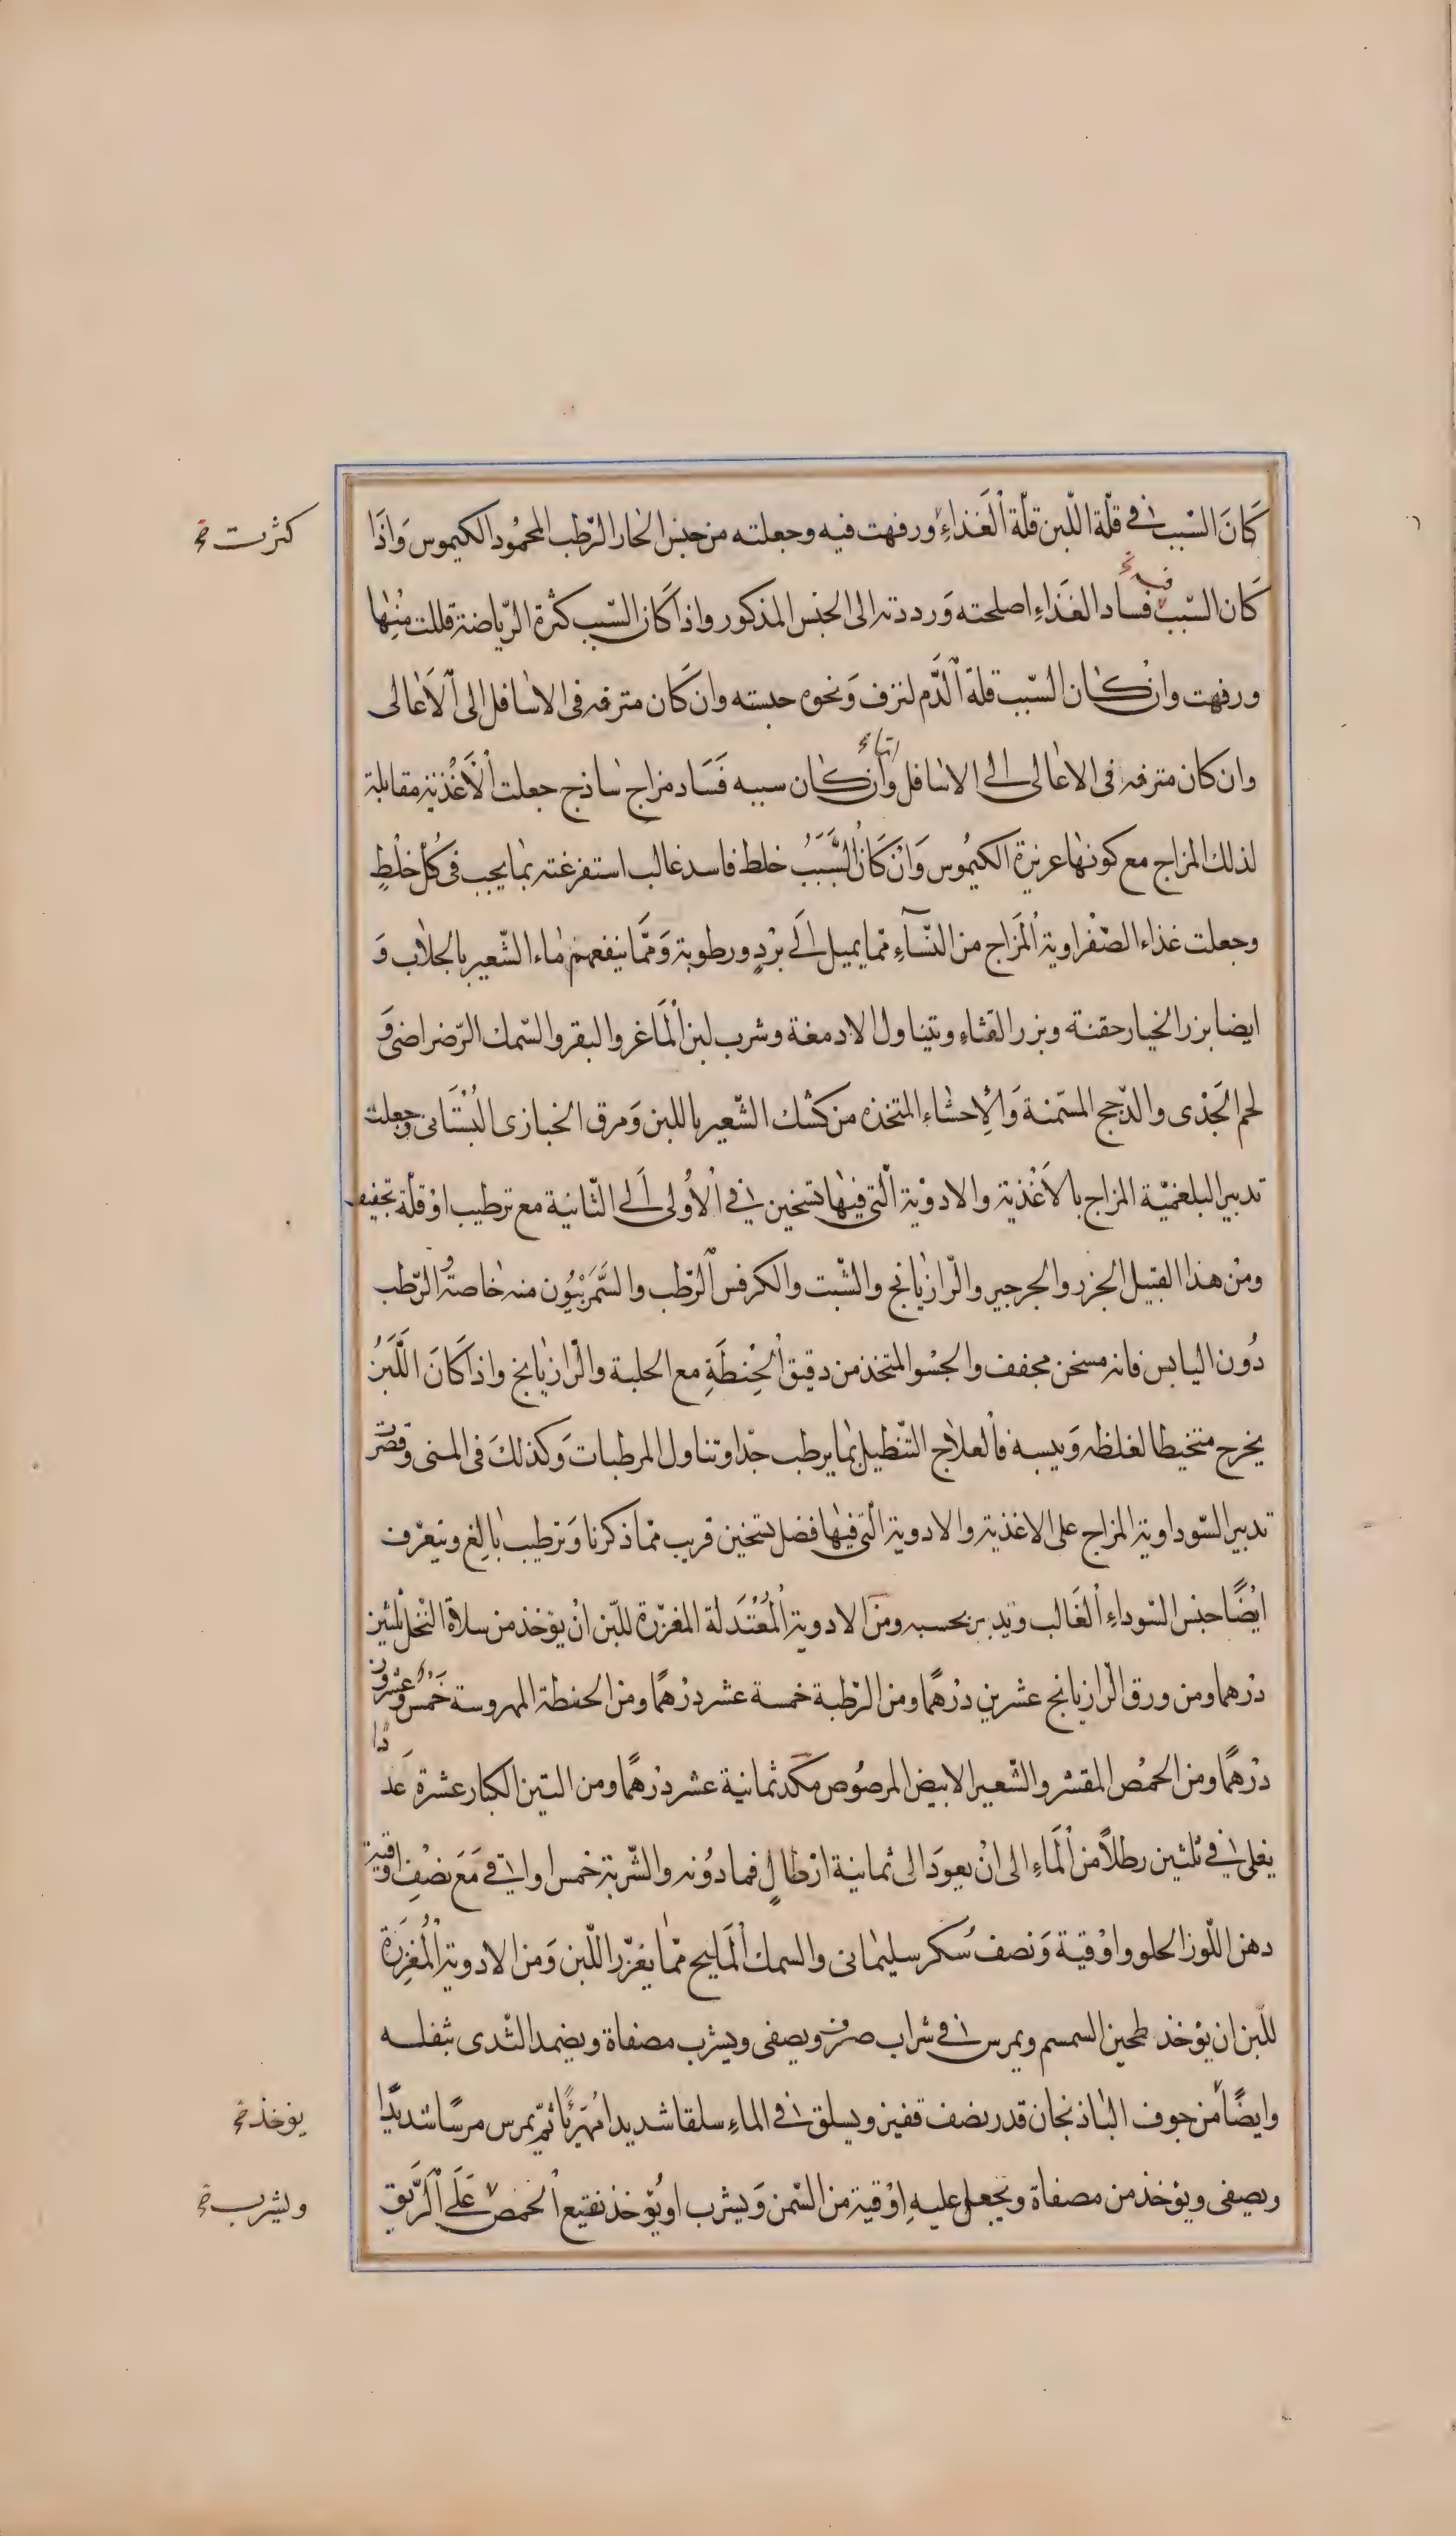 كَانَ السّبب فى قلّة اللّبن قلّة الْغَذَاءِ ورفهت فيه وجعلته من جنس الحار الرّطب المحمُود الكيموس وَاذَا
كثرت خ
كَان السّبب فساد الغَذَاءِ اصلحته وَرددته الى الجنس المذكور واذا كَان السّبب كثرة الرّياضة قللت مُنِها
فيه خ
ورفهت وانْ كان السّبب قلة الدَّم لنزف وَنحوه حبسته وان كَان مترفه فى الاسافل الى الْاَعالى
وان كان مترفه فى الاعالى الى الاسافل وان كان سببه فَسَاد مزاج ساذج جعلت الْاَغْذية مقابلة
لذلك المزاج مع كونها عزيزة الكيمُوس وَانْ كَانَ السَّبَبُ خلط فاسد غالب استفرغته بما يجب فى كُل خلْطٍ
وجعلت غذاء الصّفراوية الْمَزاج من النّسآءِ ممّا يميل الَى برْدٍ ورطوبة وَممَّا ينفعهنّ ماء الشّعير بالجلاب وَ
ايضا بزر الخيار حقنة وبزر القثاءِ وتيناول الادمغة وشرب لبن الْمَاغر والبقر والسّمك الرّضراضى وَ
لحم الجَدْى والدّجج المسّمنة وَالْاِحشاء المتخذه من كشك الشّعير باللبن وَمرق الخبازى البُسْتَانى وجعلت
تدبير البلغميّة المزاج بالْاَغْذية والادوْية الّتى فيها تسخين فى الْاُولى الَى الثّانية مع ترطيب اوْ قلّة تجفيف
ومنْ هذا القبيل الجزر والجرجير والرّازيانج والشّبت والكرفس الرّطب والسَّمَرْنيُون منه خاصةً الرّطب
دُون اليابس فانه مسخن مجفف والحسْو المتخذ من دقيق الْحِنطَةِ مع الحلبة والرّازيانج واذا كَانَ اللَّبَنُ
يخرج متخيطا لغلظه وَيبسه فالعلاج التّنظيل بما يرطب جدّا وتناول المرطبات وَكذلكَ فى المنى وقصرت
تدبير السّوداوية المزاج على الاغذية والادوية الّتى فيها فضل تسخين قريب ممّا ذكرنا وَترطيب بالِغ ويتعرّف
ايْضًا جنس السّوداءِ الْغَالب وَيدبر بحسبه ومن الادوية الْمُعْتَدلة المغزّرة للّبن انْ يؤخذ من سلاة النّخل ثلثين
درْهما ومن ورق الرّازيانج عشرين درْهمًا ومن الرّطبة خمسة عشر درْهمًا ومن الحنطة المهروسة خَمْس وعشرون
درْهمًا ومن الحمّص المقشر والشّعير الابيض المرصُوص مكد ثمانية عشر درْهمًا ومن التين الكبار عشرة عَددًا
يغلى فى ثلثين رطلًا من الْمَاءِ الى انْ يعودَ الى ثمانية ارْطالٍ فما دوُنه والشّربة خمس اواقى مَعَ نصْفِ اوقية
دهن اللّوز الحلو واوْقية وَنصف سُكر سليمانى والسمك الْمَليح ممّا يغزّر اللّبن وَمن الادوية الْمُغزِرَة
للّبن ان يؤخذ طحين السمسم ويمرس فى شراب صرف ويصفى ويشرب مصفاة ويضمد الثّدى بثفله
وايضًا من جوف الباذنجان قدر نصف قفيز ويسلق فى الماءِ سلقا شديدا مُهرّئًا ثمّ يمرس مرسًا شديْدًا
يؤخذ خ
ويصفى ويؤخذ من مصفاة ويجعل عليهِ اوْقية من السّمن وَيشرب او يُؤخذ نقيع الْحمص عَلَى الرّيْق
ويشرب خ